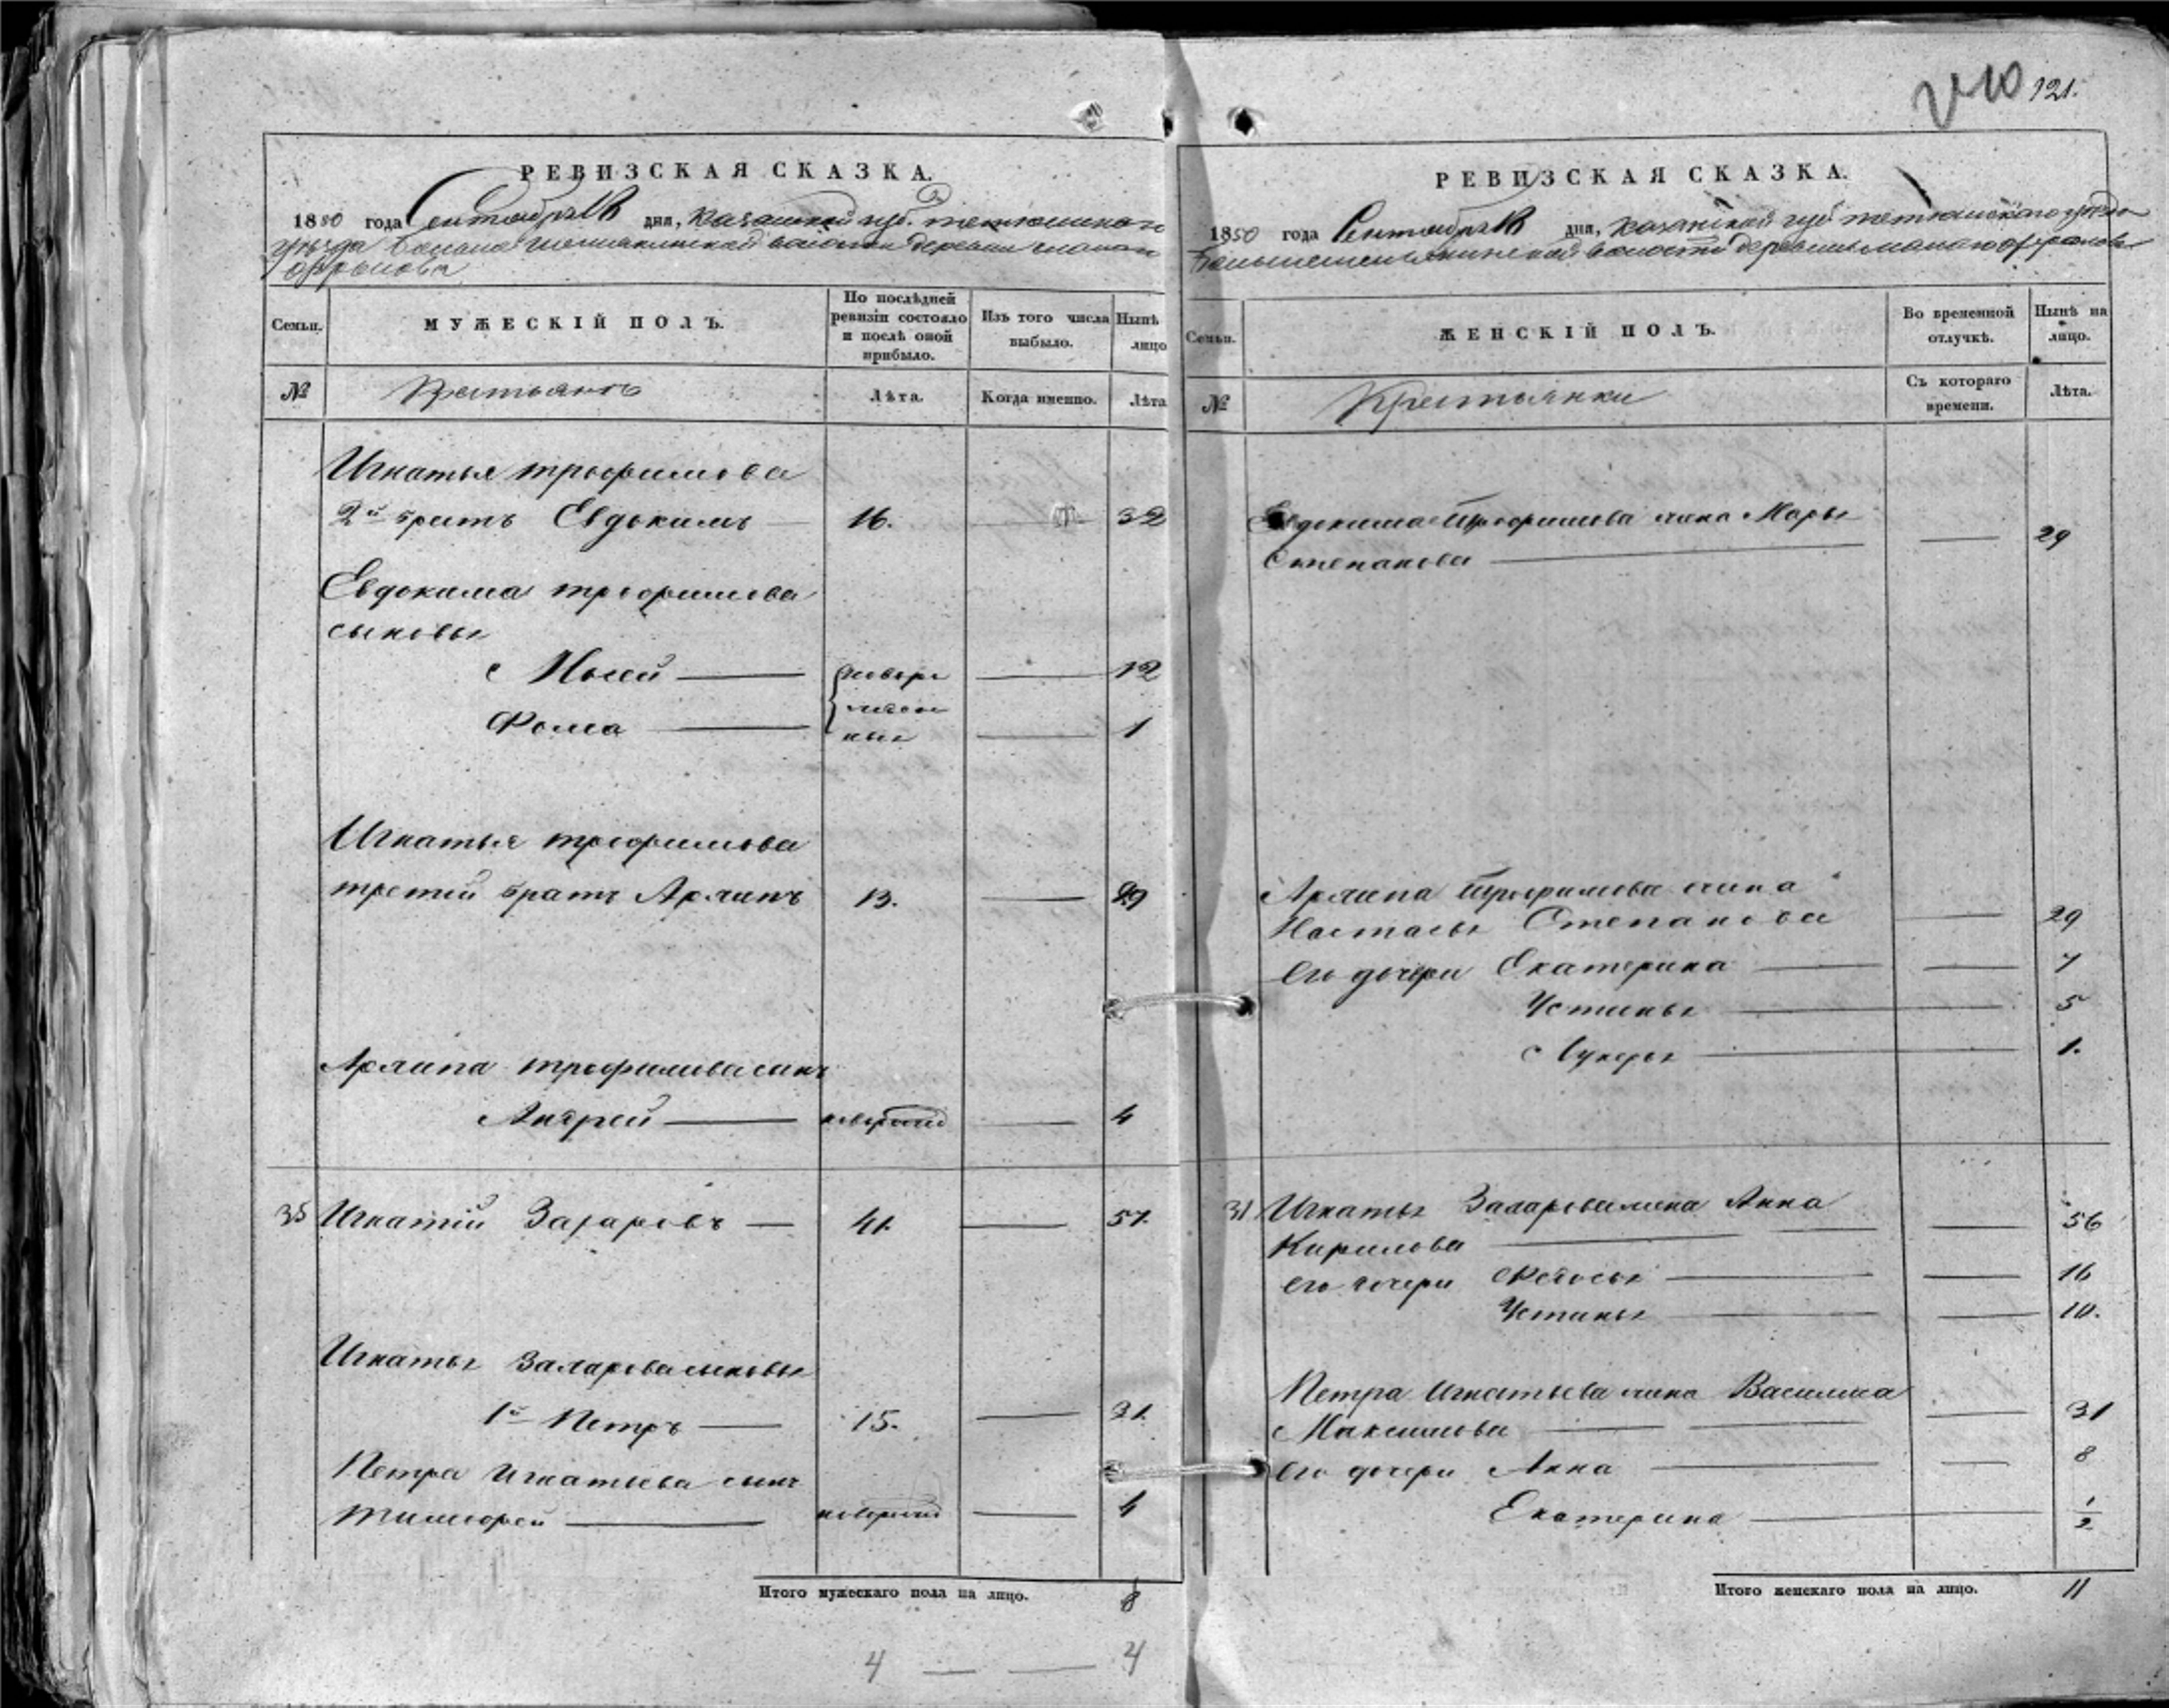 121.
РЕВИЗСКАЯ СКАЗКА.
1850 года Сентября дня, Казанской губ. тетюшскаго
уѣзда волости деревни
РЕВИЗСКАЯ СКАЗКА.
1850 года Сентября дня, Казанской губ тетюшскаго уѣзда
волости деревни малаго
Семьи. МУЖЕСКІЙ ПОЛЪ. По послѣдней ревизіи состояло и послѣ оной прибыло. Изъ того числа выбыло. Нынѣ лицо
№ Крестьянъ Лѣта. Когда именно. Лѣта
Игнатья трофимова
2й братъ Евдокимъ — 16. — 32
Евдокима трофимова
сыновья
Мосей — новорожденные — 12
Фома — — 1
Игнатья трофимова
третий братъ Архипъ 13. — 29
Архипа трофимова сынъ
Андрей — новорожд — 4
35 Игнатій Захаровъ — 41. — 57.
Игнатья Захарова сыновья
1й Петръ — 15. — 31.
Петра Игнатьева сынъ
тимофей — новорожд — 4
Итого мужескаго пола на лицо. 8
4 — — 4
Семьи. ЖЕНСКІЙ ПОЛЪ. Во временной отлучкѣ. Нынѣ на лицо.
№ Крестьянки Съ котораго времени. Лѣта.
Евдокима Трофимова жена Марья
Степанова — — 29
Архипа Трофимова жена
Настасья Степанова — 29
Его дочери Екатерина — — 7
Устинья — 5
Лукерья — 1.
Игнатья Захарова жена Анна
Кирилова — — 56
Его дочери Федосья — — 16
Устинья — — 10.
Петра Игнатьева жена Василиса
Максимова — — 31
Его дочери Анна — — 8
Екатерина — 1/2
Итого женскаго пола на лицо. 11